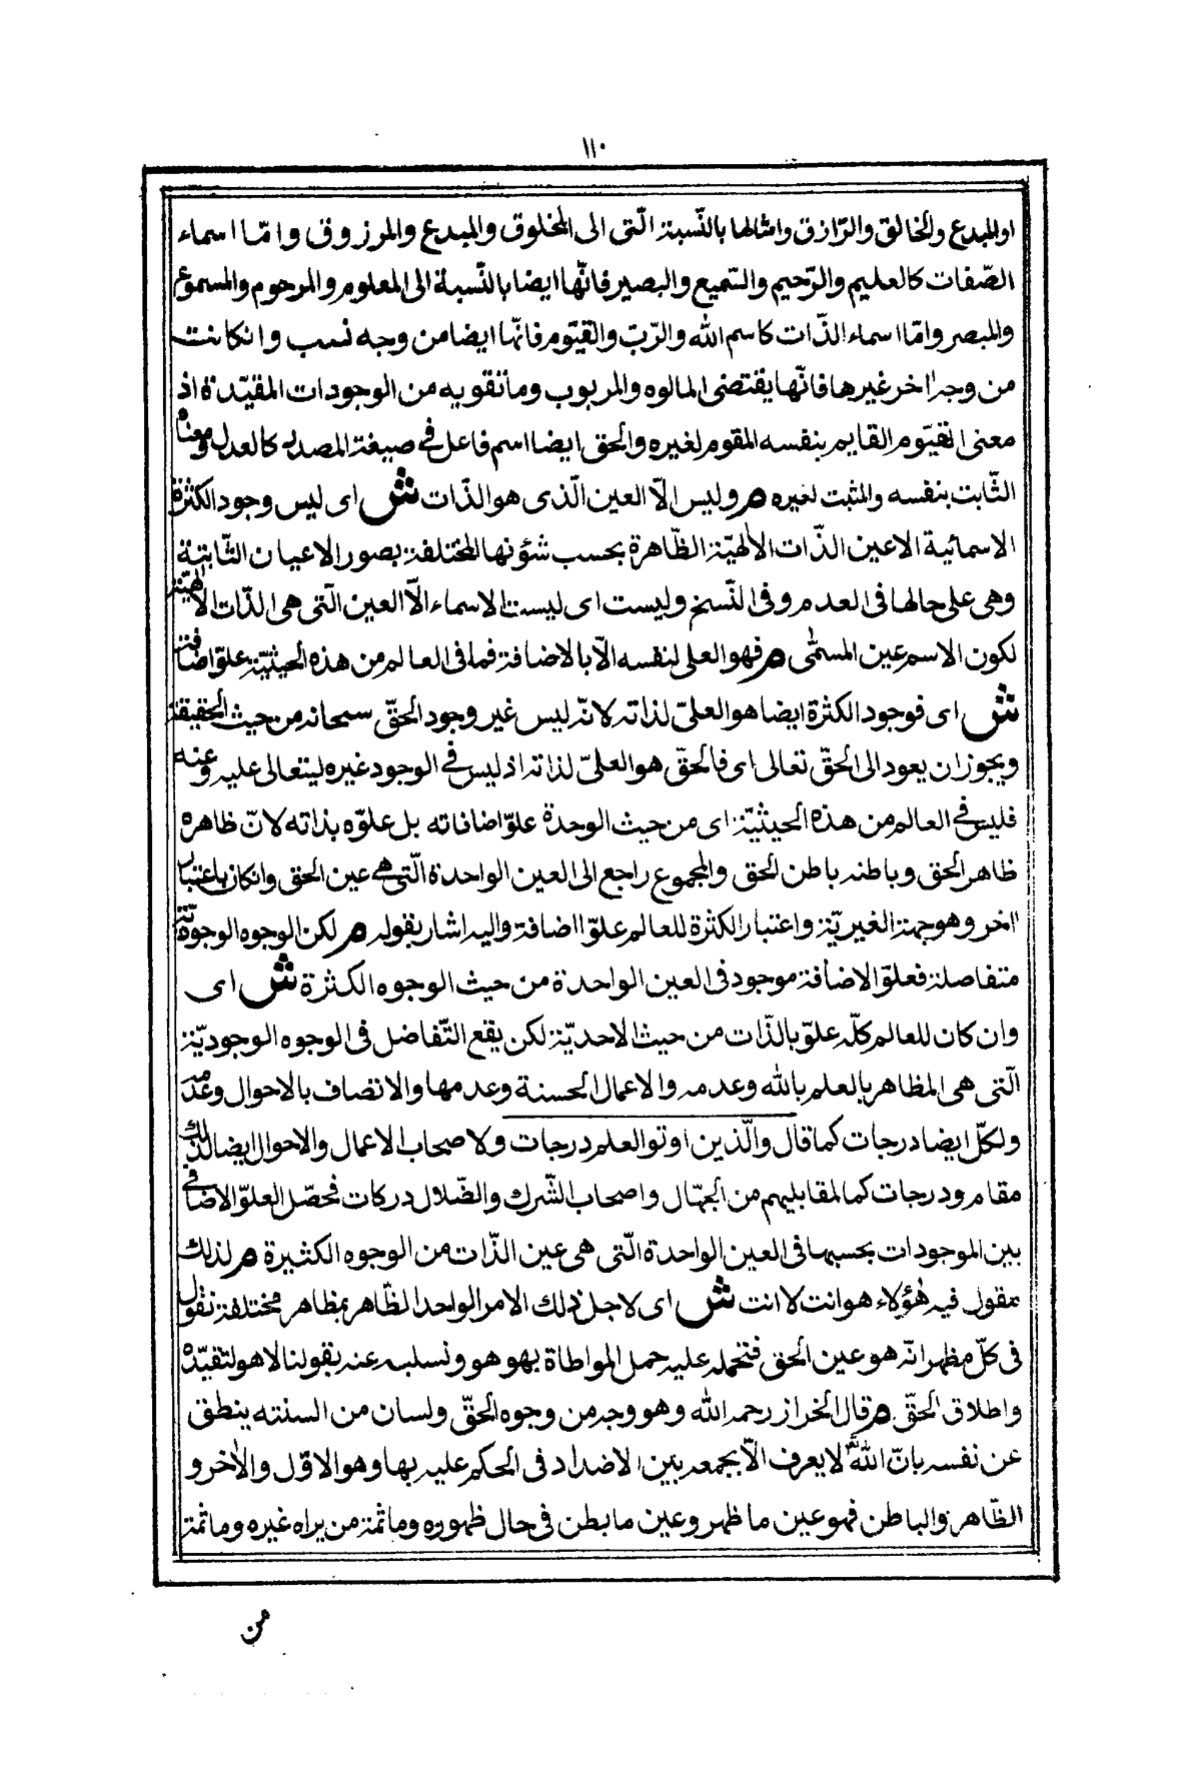 ١١٠
او المبدع والخالق والرّازق وامثالها بالنّسبة الّتى الى المخلوق والمبدع والمرزوق وامّا اسماء
الصّفات كالعليم والرّحيم والسّميع والبصير فانّها ايضا بالنّسبة الى المعلوم والمرحوم والمسموع
والمبصر وامّا اسماء الذّات كاسم الله والرّبّ والقيّوم فانّها ايضا من وجه نسب وانكانت
من وجه اخر غيرها فانّها يقتضى المالوه والمربوب وما تقوّيه من الوجودات المقيّدة اذ
معنى القيّوم القايم بنفسه المقوم لغيره والحق ايضا اسم فاعل فى صيغة المصدر كالعدل ومعناه
الثّابت بنفسه والمثبت لغيره م وليس الاّ العين الّذى هو الذّات ش اى ليس وجود الكثرة
الاسمائية الا عين الذّات الالهيّة الظّاهرة بحسب شؤنها المختلفة بصور الاعيان الثّابتة
وهى على حالها فى العدم وفى النّسخ وليست اى ليست الاسماء الاّ العين الّتى هى الذّات الالهيّة
لكون الاسم عين المسمّى م فهو العلى لنفسه الاّ بالاضافة فما فى العالم من هذه الحيثيّة علوّ اضافة
ش اى فوجود الكثرة ايضا هو العلىّ لذاته لانّه ليس غير وجود الحقّ سبحانه من حيث الحقيقة
ويجوز ان يعود الى الحقّ تعالى اى فالحقّ هو العلىّ لذاته اذ ليس فى الوجود غيره ليتعالى عليه وعنه
فليس فى العالم من هذه الحيثيّة اى من حيث الوحدة علوّ اضافاته بل علوّه بذاته لانّ ظاهره
ظاهر الحق وباطنه باطن الحق والمجموع راجع الى العين الواحدة الّتى هى عين الحق وانكان باعتبار
اخر وهو جهة الغيريّة واعتبار الكثرة للعالم علوّ اضافة واليه اشار بقوله م لكن الوجوه الوجوديّة
متفاصلة فعلوّ الاضافة موجود فى العين الواحدة من حيث الوجوه الكثرة ش اى
وان كان للعالم كلّه علوّ بالذّات من حيث الاحديّة لكن يقع التّفاضل فى الوجوه الوجوديّة
الّتى هى المظاهر بالعلم بالله وعدمه والاعمال الحسنة وعدمها والاتصاف بالاحوال وعدمه
ولكلّ ايضا درجات كما قال والّذين اوتوا العلم درجات ولاصحاب الاعمال والاحوال ايضا لذلك
مقام ودرجات كما لمقابليهم من الجهّال واصحاب الشّرك والضّلال دركات فحصّل العلوّ الاضافى
بين الموجودات بحسبها فى العين الواحدة الّتى هى عين الذّات من الوجوه الكثيرة م لذلك
مقول فيه هٰؤلاء هو انت لا انت ش اى لاجل ذلك الامر الواحد الظّاهر بمظاهر مختلفة نقول
فى كلّ مظهر انّه هو عين الحق فتحمله عليه حمل المواطاة بهو هو ونسلبه عنه بقولنا لا هو لتقيّده
واطلاق الحقّ م قال الخراز رحمه الله وهو وجه من وجوه الحقّ ولسان من السنته ينطق
عن نفسه بانّ الله لا يعرف الاّ بجمعه بين الاضداد فى الحكم عليه بها وهو الاوّل والاٰخر و
الظّاهر والباطن فهو عين ما ظهر وعين ما بطن فى حال ظهوره وما ثمة من يراه غيره وما ثمة
من